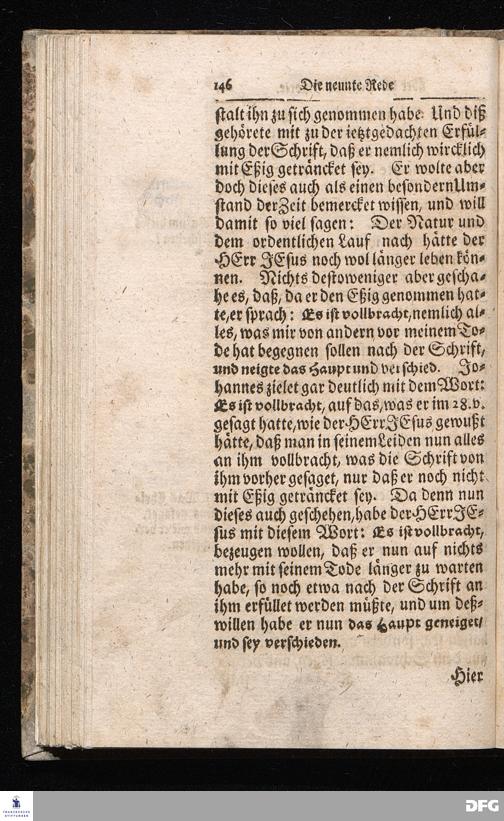 146 Die neunte Rede
stalt ihn zu sich genommen habe. Und diß
gehörete mit zu der ietztgedachten Erfül-
lung der Schrift, daß er nemlich wircklich
mit Eßig geträncket sey. Er wolte aber
doch dieses auch als einen besondern Um-
stand der Zeit bemercket wissen, und will
damit so viel sagen: Der Natur und
dem ordentlichen Lauf nach hätte der
HErr JEsus noch wol länger leben kön-
nen. Nichts destoweniger aber gescha-
he es, daß, da er den Eßig genommen hat-
te, er sprach: Es ist vollbracht, nemlich al-
les, was mir von andern vor meinem To-
de hat begegnen sollen nach der Schrift,
und neigte das Haupt und verschied. Jo-
hannes zielet gar deutlich mit dem Wort:
Es ist vollbracht, auf das, was er im 28. v.
gesagt hatte, wie der HErr JEsus gewußt
hätte, daß man in seinem Leiden nun alles
an ihm vollbracht, was die Schrift von
ihm vorher gesaget, nur daß er noch nicht
mit Eßig geträncket sey. Da denn nun
dieses auch geschehen, habe der HErr JE-
sus mit diesem Wort: Es ist vollbracht,
bezeugen wollen, daß er nun auf nichts
mehr mit seinem Tode länger zu warten
habe, so noch etwa nach der Schrift an
ihm erfüllet werden müßte, und um deß-
willen habe er nun das Haupt geneiget/
und sey verschieden.
Hier
FRANCKESCHE
STIFTUNGEN
DFG